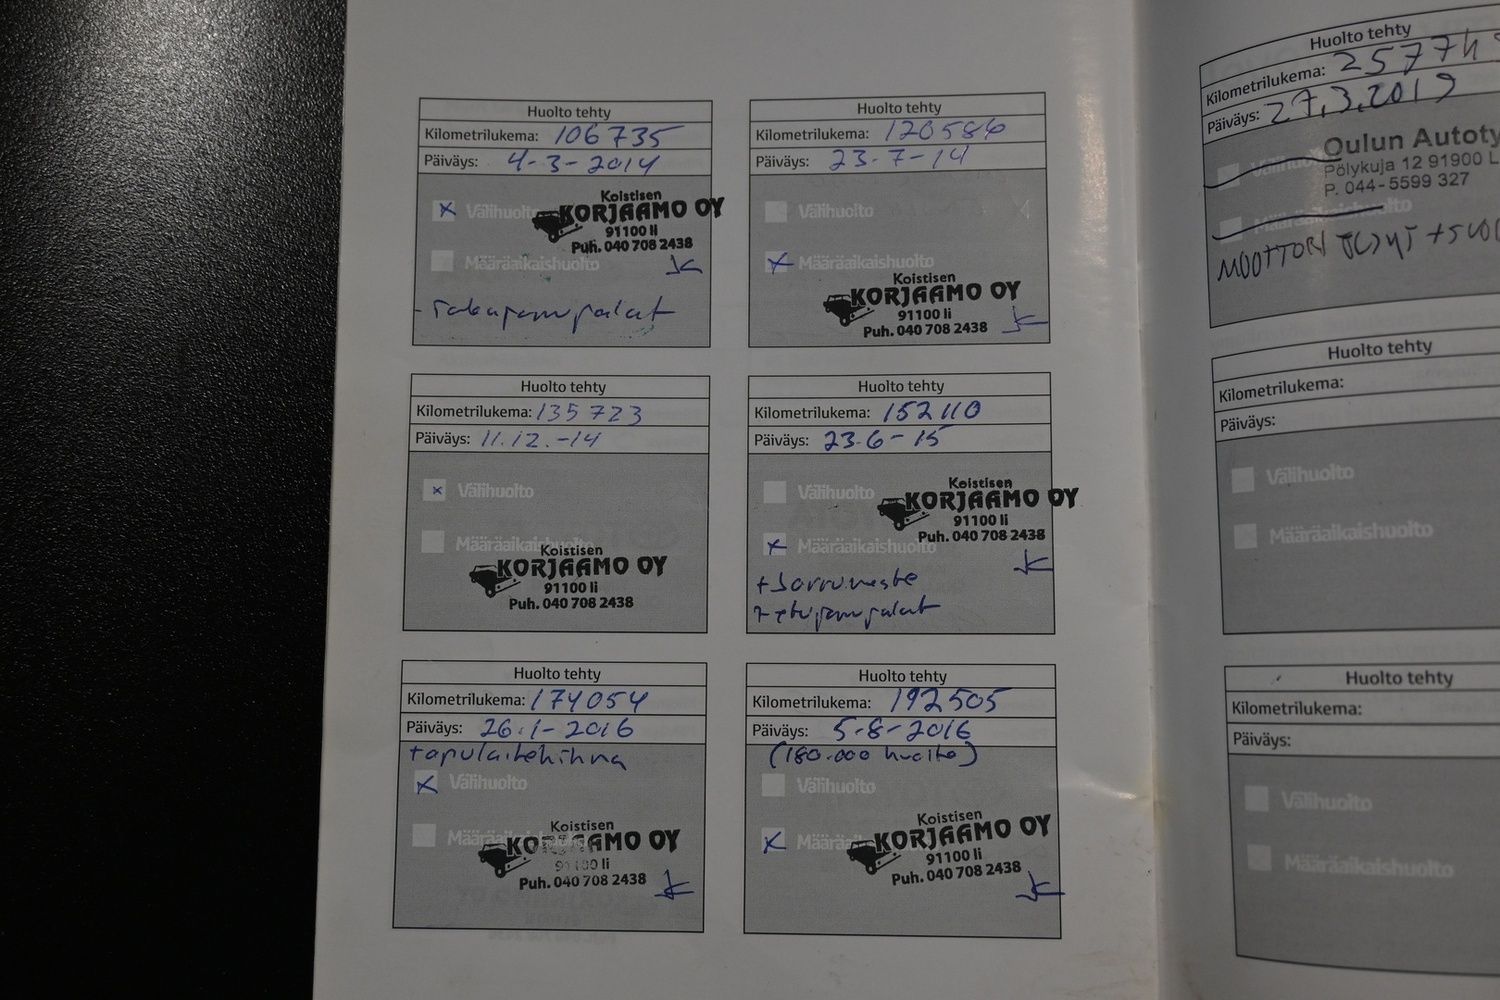 Huolto tehty
Kilometrilukema: 106735
Päiväys: 4-3-2014
Välihuolto
Koistisen
KORJAAMO OY
91100 Ii
Puh. 040 708 2438
Määräaikaishuolto
- Takajarrupalat
Huolto tehty
Kilometrilukema: 120586
Päiväys: 23-7-14
Välihuolto
Määräaikaishuolto
Koistisen
KORJAAMO OY
91100 Ii
Puh. 040 708 2438
Huolto tehty
Kilometrilukema: 135723
Päiväys: 11.12.-14
Välihuolto
Määräaikaishuolto
Koistisen
KORJAAMO OY
91100 Ii
Puh. 040 708 2438
Huolto tehty
Kilometrilukema: 152110
Päiväys: 23-6-15
Välihuolto
Koistisen
KORJAAMO OY
91100 Ii
Puh. 040 708 2438
Määräaikaishuolto
+ Jarruneste
+ etujarrupalat
Huolto tehty
Kilometrilukema: 174054
Päiväys: 26.1-2016
+apulaitehihna
Välihuolto
Määräaikaishuolto
Koistisen
KORJAAMO OY
91100 Ii
Puh. 040 708 2438
Huolto tehty
Kilometrilukema: 192505
Päiväys: 5-8-2016
(180.000 huolto)
Välihuolto
Koistisen
KORJAAMO OY
91100 Ii
Puh. 040 708 2438
Huolto tehty
Kilometrilukema: 25774
Päiväys: 27.3.2019
Oulun Autoty
Välihuolto
Pölykuja 12 91900 L
P. 044-5599 327
Määräaikaishuolto
MOOTTORI ÖLJYT + SUO
Huolto tehty
Kilometrilukema:
Päiväys:
Välihuolto
Määräaikaishuolto
Huolto tehty
Kilometrilukema:
Päiväys:
Välihuolto
Määräaikaishuolto